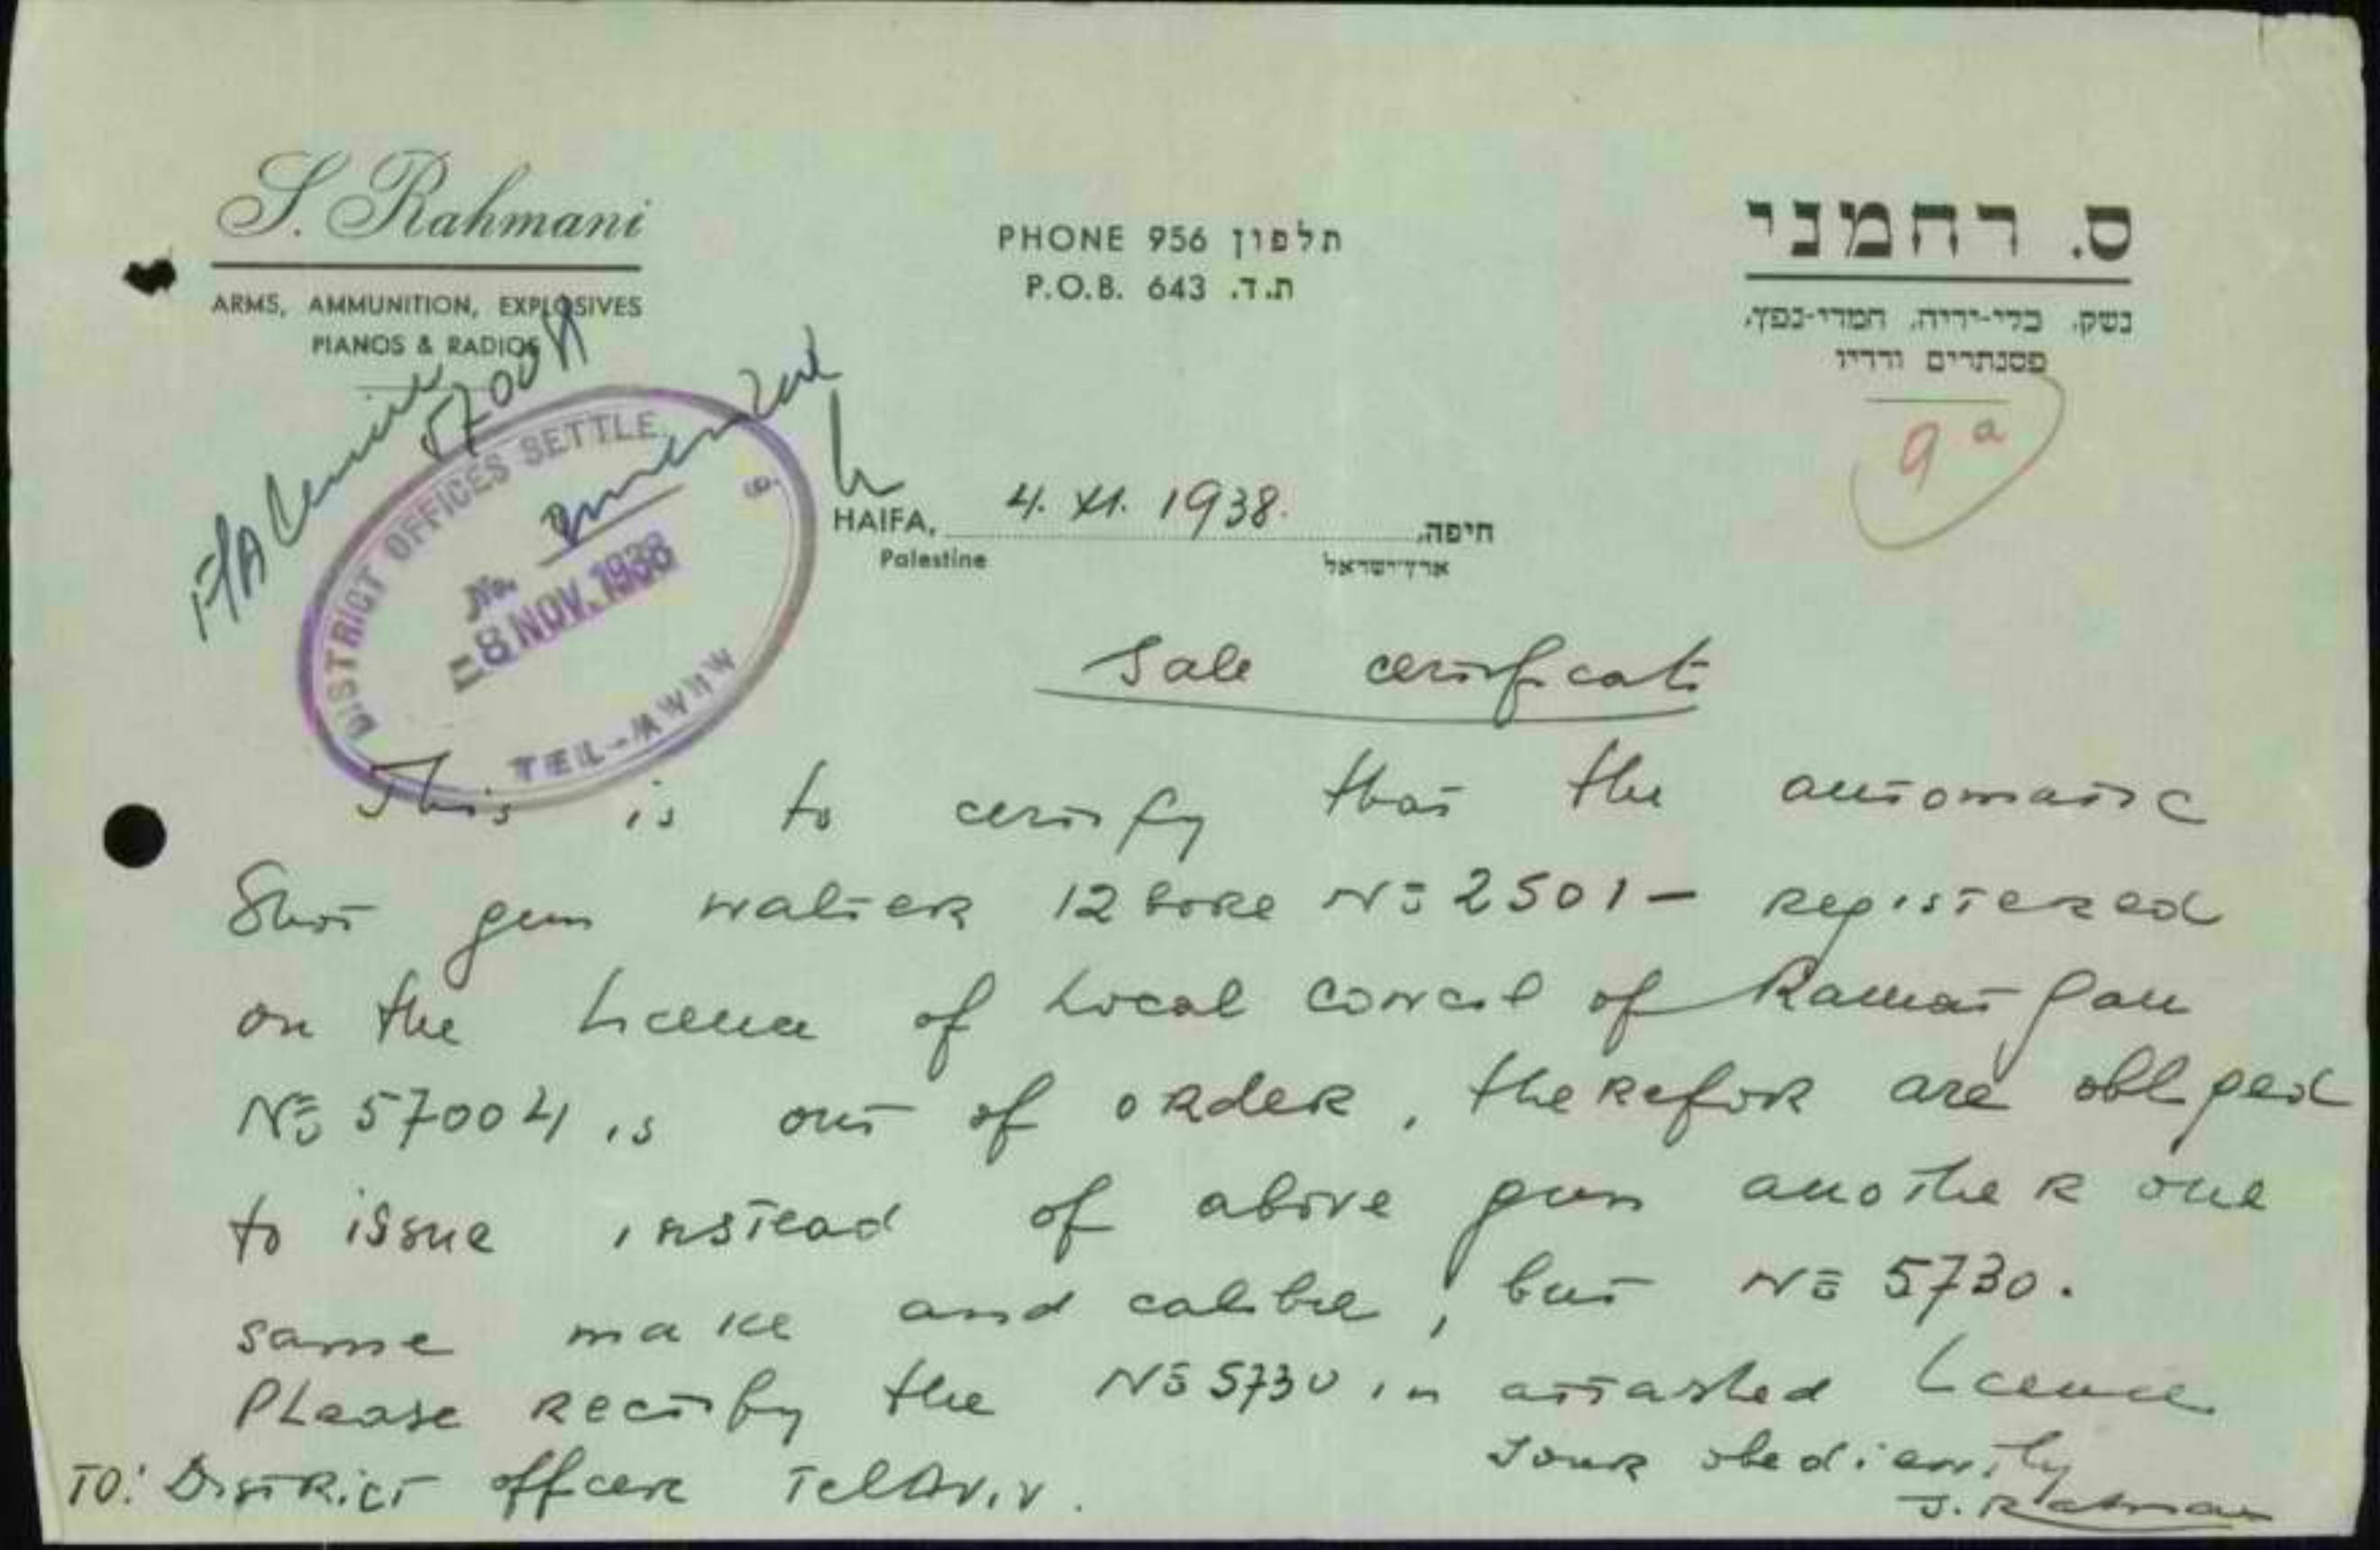 S. Rahmani
ARMS, AMMUNITION, EXPLOSIVES
PIANOS & RADIOS
PHONE 956 תלפון
P.O.B. 643 ת.ד.
ס. רחמני
נשק, כלי-יריה, חמרי-נפץ,
פסנתרים ורדיו
9a
57004
DISTRICT OFFICES SETTLE
No.
8 NOV. 1938
TEL-AWIW
HAIFA, 4. XI. 1938. חיפה,
Palestine ארץ-ישראל
Sale certificate
This is to certify that the automatic
Shot gun walter 12 bore No 2501 - registered
on the Licence of Local Council of Ramat Gan
No 57004 is out of order, therefor are obliged
to issue instead of above gun another one
same make and calibre, but No 5730.
Please rectify the No 5730 in attashed Licence
Your obediently
S. Rahmani
TO: District officer Tel Aviv.